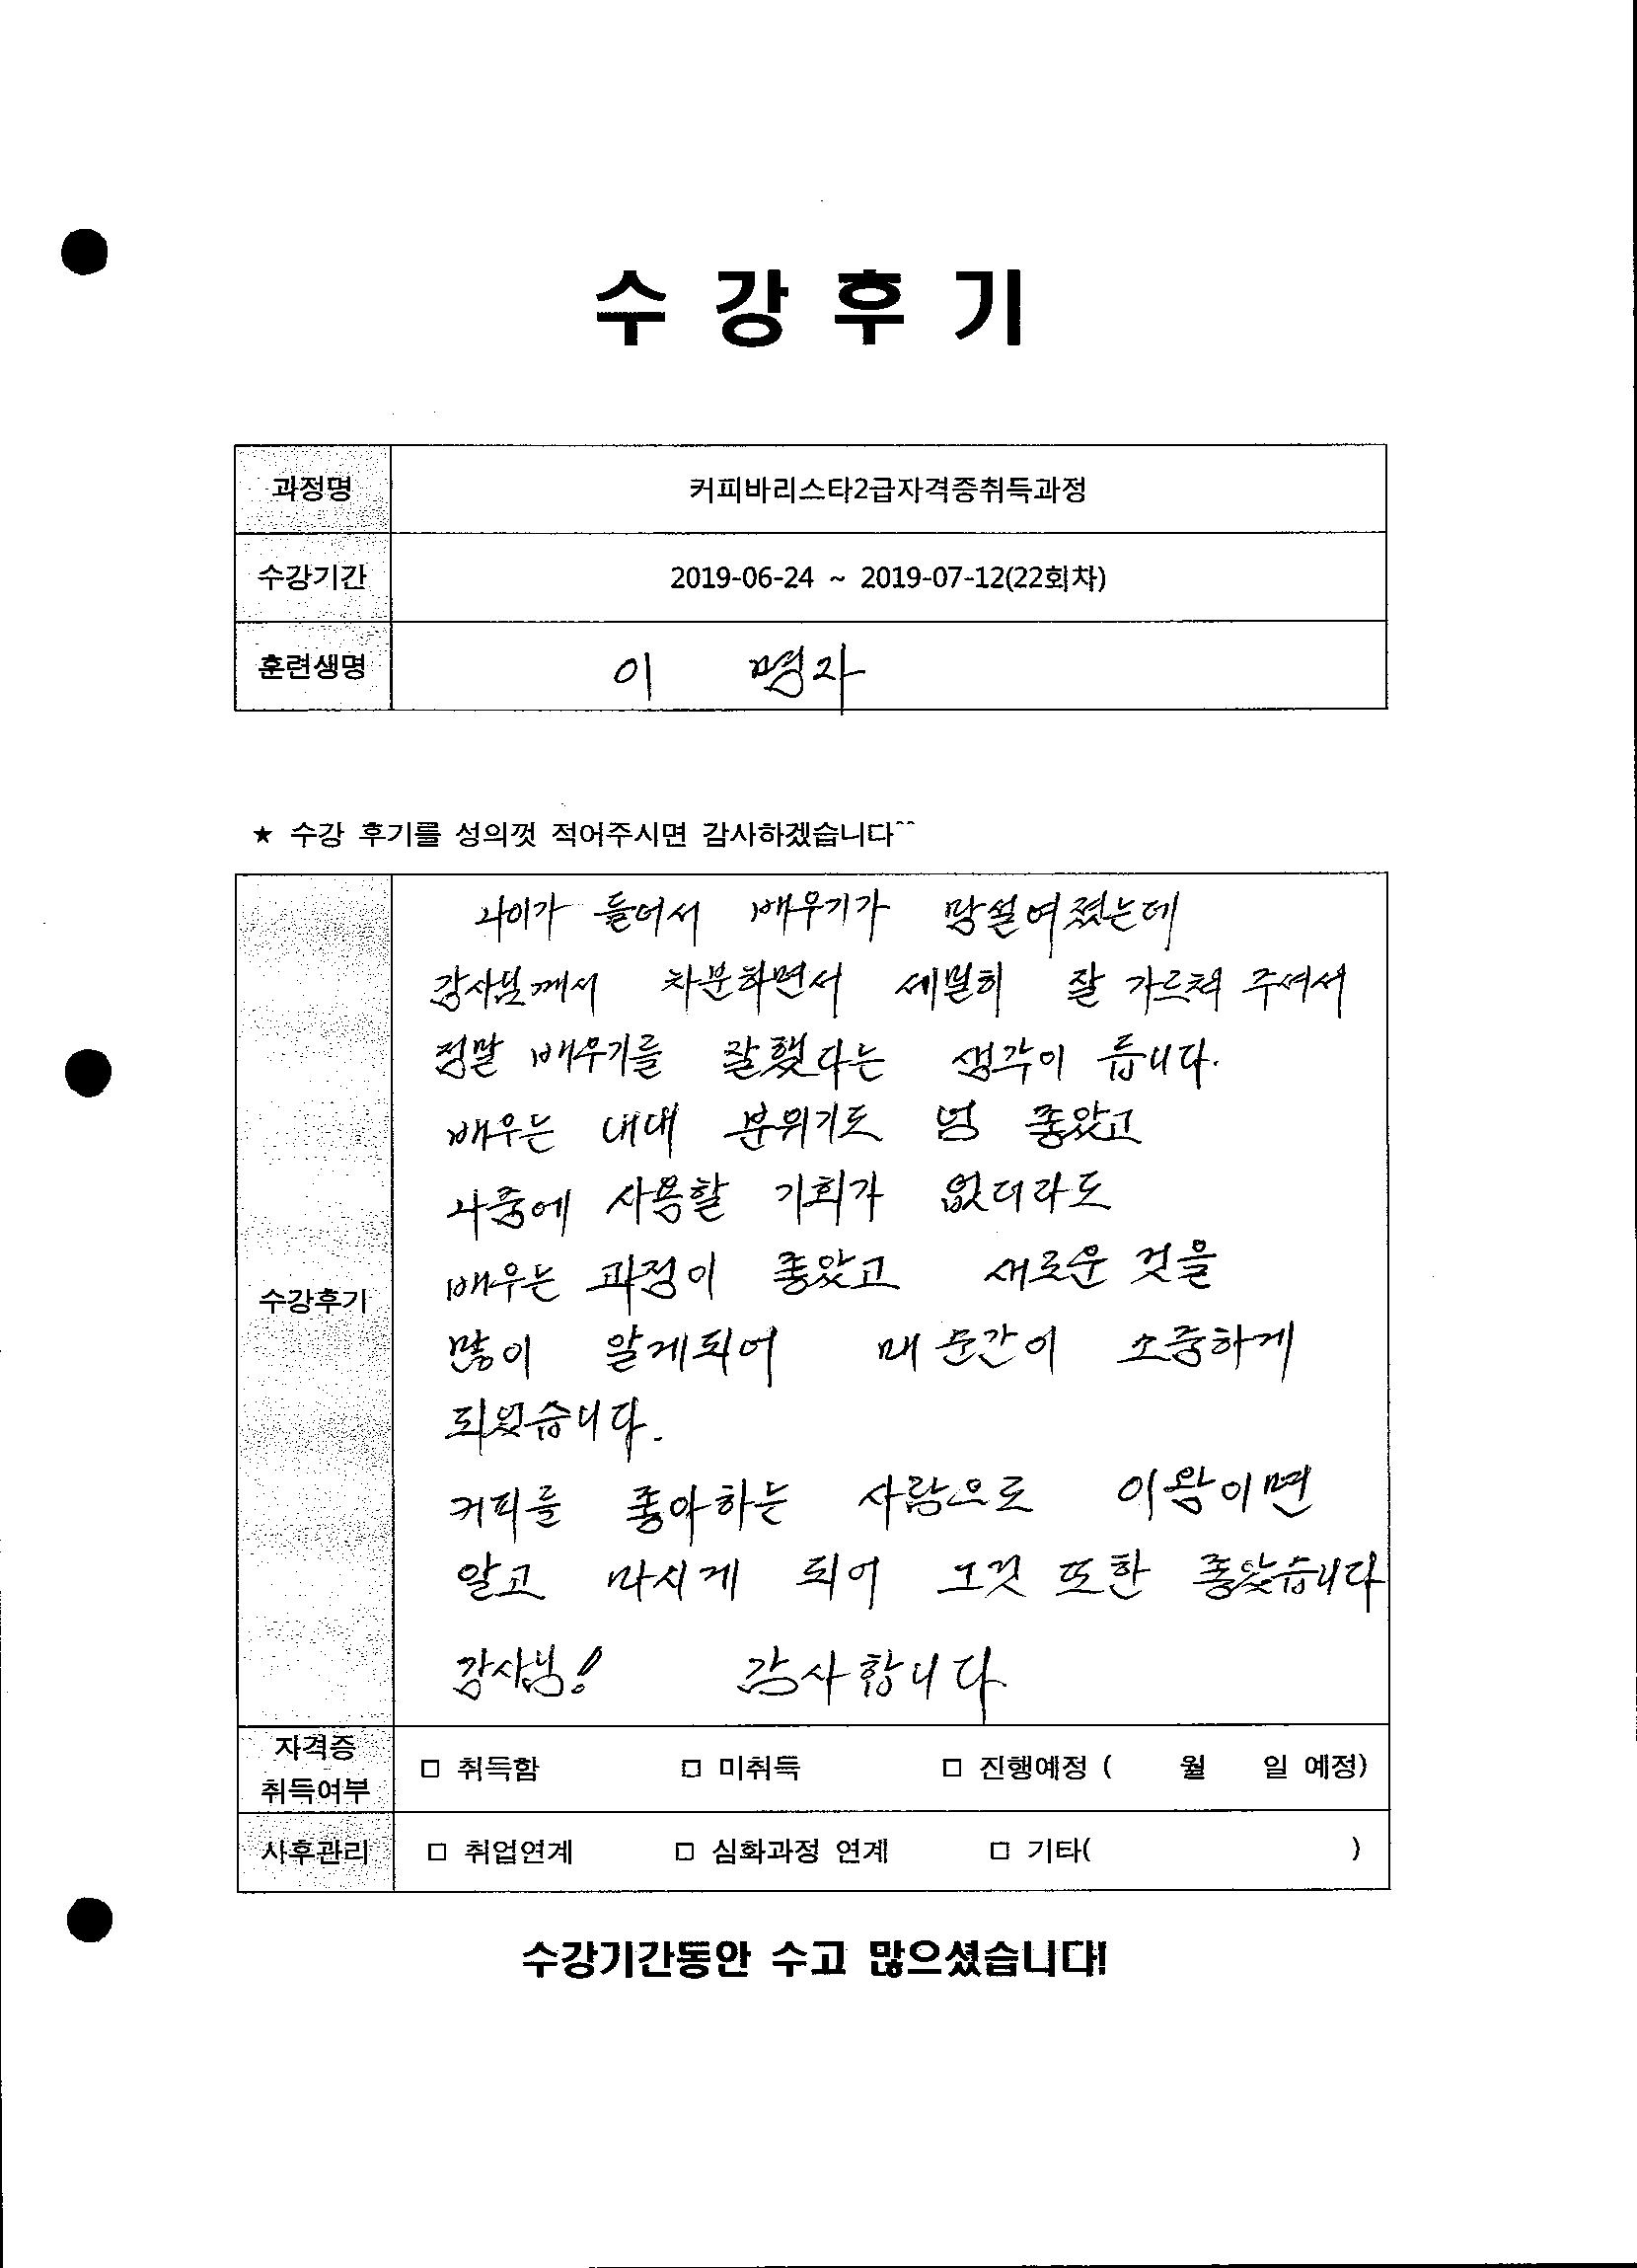 수 강 후 기
과정명 커피바리스타2급자격증취득과정
수강기간 2019-06-24 ~ 2019-07-12(22회차)
훈련생명 이 명자
★ 수강 후기를 성의껏 적어주시면 감사하겠습니다^^
나이가 들어서 배우기가 망설여졌는데
강사님께서 차분하면서 세밀히 잘 가르쳐 주셔서
정말 배우기를 잘했다는 생각이 듭니다.
배우는 내내 분위기도 넘 좋았고
나중에 사용할 기회가 없더라도
배우는 과정이 좋았고 새로운 것을
수강후기
많이 알게되어 매 순간이 소중하게
되었습니다.
커피를 좋아하는 사람으로 이왕이면
알고 마시게 되어 그것 또한 좋았습니다
강사님! 감사합니다
자격증
취득여부
□ 취득함 □ 미취득 □ 진행예정 ( 월 일 예정)
사후관리 □ 취업연계 □ 심화과정 연계 □ 기타( )
수강기간동안 수고 많으셨습니다!